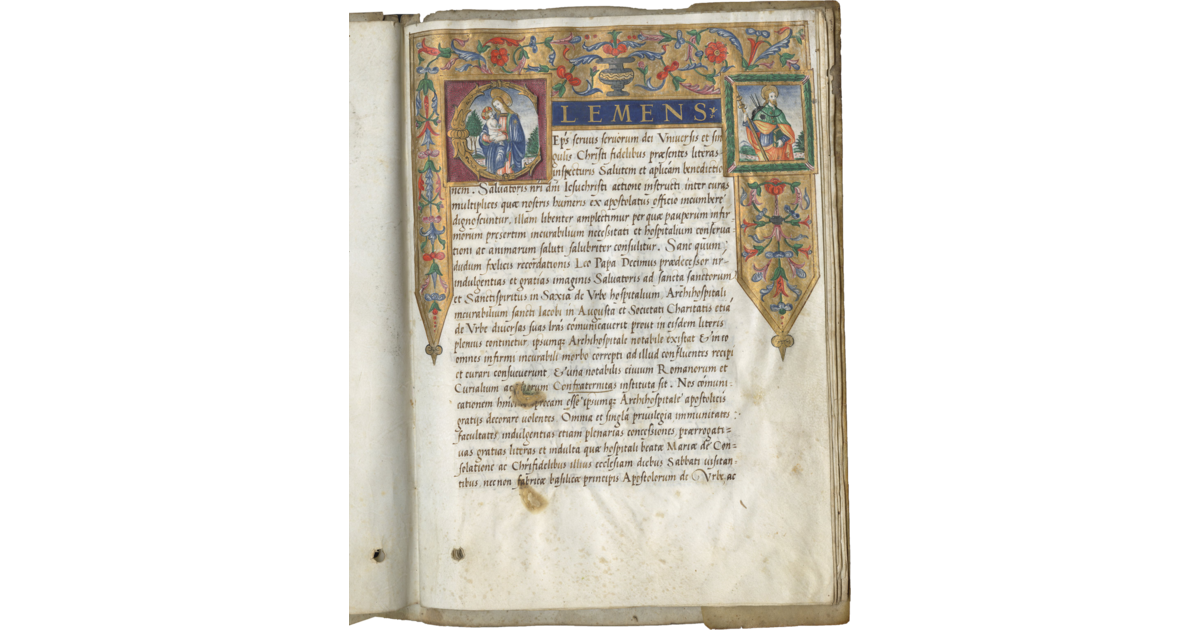 CLEMENS
Eps seruus seruorum dei Vniuersis et sin
gulis Christi fidelibus præsentes literas
inspecturis Salutem et aplicam benedictio
nem. Saluatoris nri dni Iesuchristi actione instructi inter curas
multiplices quæ nostris humeris ex apostolatus officio incumbere
dignoscuntur, illam libenter amplectimur per quæ pauperum infir
morum presertim incurabilium necessitati et hospitalium conserua
tioni ac animarum saluti salubriter consulitur. Sane quum
dudum fœlicis recordationis Leo Papa Decimus prædecessor nr
indulgentias et gratias imaginis Saluatoris ad sancta sanctorum
et Sanctispiritus in Saxia de Vrbe hospitalium, Archihospitali
incurabilium sancti Iacobi in Augusta et Societati Charitatis etiā
de Vrbe diuersas suas lras cōmunicauerit prout in eisdem literis
plenius continetur ipsumq; Archihospitale notabile existat & in eo
omnes infirmi incurabili morbo correpti ad illud confluentes recipi
et curari consueuerunt, & una notabilis ciuium Romanorum et
Curialium ac Confraternitas instituta sit. Nos cōmuni-
cationem esse ipsumq; Archihospitale apostolicis
gratijs decorare volentes. Omnia et singula priuilegia immunitates
facultates indulgentias etiam plenarias concessiones prærrogati=
uas gratias literas et indulta quæ hospitali beatæ Mariæ de Con=
solatione ac Chrifidelibus illius ecclesiam diebus Sabbati uisitan
tibus necnon fabricæ basilicæ principis Apostolorum de Vrbe ac